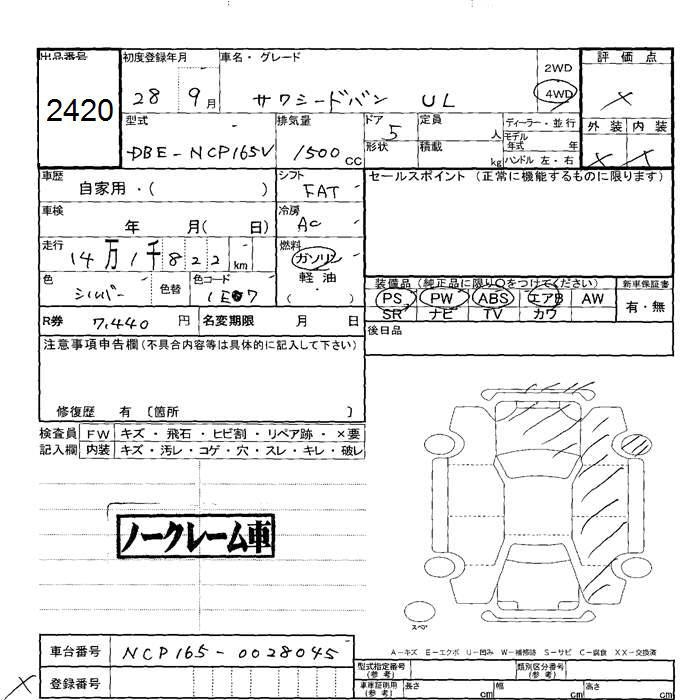 出品番号
2420
初度登録年月
28 9月
車名・グレード
サクシードバン UL
2WD
4WD
評価点
×
型式
DBE-NCP165V
排気量
1500 CC
ドア
5
定員
人
形状
積載
kg
ディーラー・並行
モデル
年式 年
ハンドル 左・右
外装 内装
× ×
車歴
自家用・( )
シフト
FAT
車検
年 月( 日)
冷房
AC
走行
14万1千822 km
燃料
ガソリン
軽油
( )
色
シルバー
色替
色コード
1E07
R券 7,440 円
名変期限 月 日
セールスポイント (正常に機能するものに限ります)
装備品 (純正品に限り○をつけてください)
新車保証書
PS PW ABS エアB AW
SR ナビ TV カワ
有・無
後日品
注意事項申告欄(不具合内容等は具体的に記入して下さい)
修復歴 有 〔箇所 〕
検査員
記入欄
FW キズ・飛石・ヒビ割・リペア跡・×要
内装 キズ・汚レ・コゲ・穴・スレ・キレ・破レ
ノークレーム車
スペア
A-キズ E-エクボ U-凹み W-補修跡 S-サビ C-腐食 XX-交換済
車台番号 NCP165-0028045
× 登録番号
型式指定番号
(参考)
類別区分番号
(参考)
車車証明用
(参考)
長さ cm
幅 cm
高さ cm